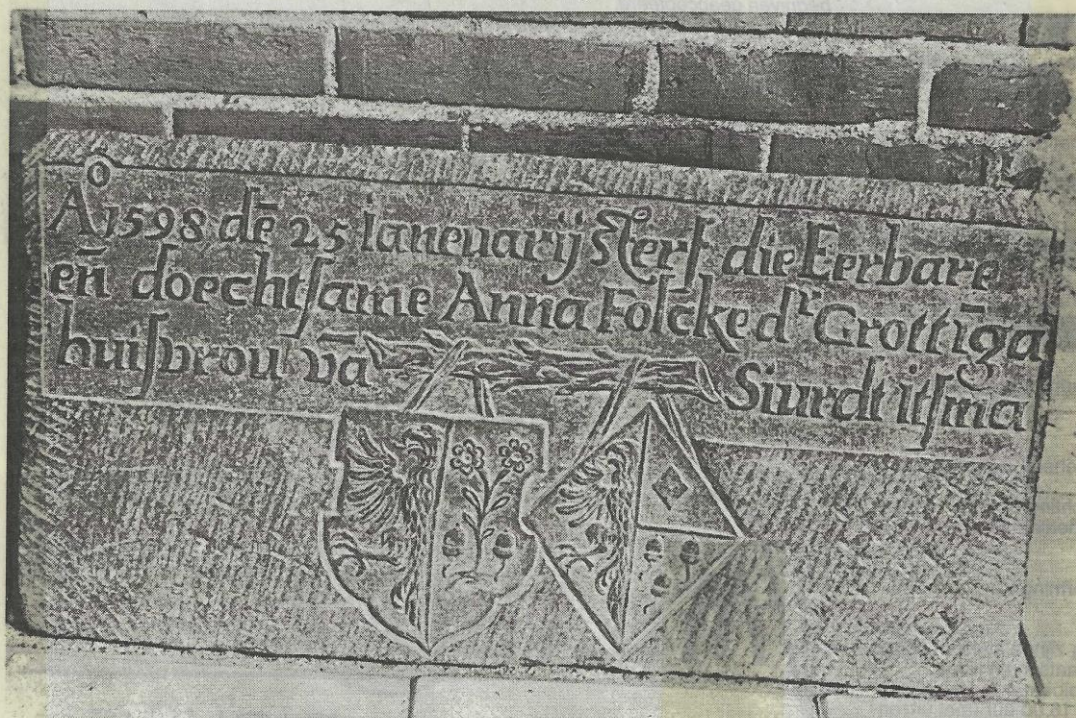 Aº 1598 dē 25 ianeuarij Sterf die Eerbare
en̄ doechtſame Anna Folcke dʳ Grottīga
huiſvrou vā Siurdt itſma